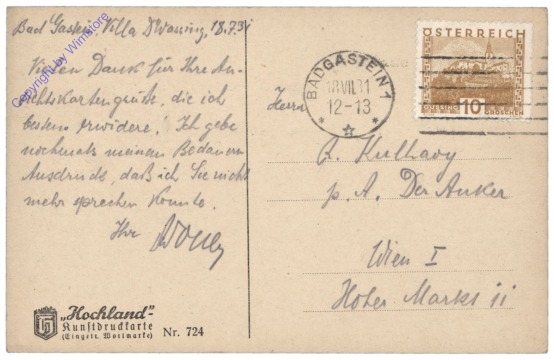 Bad Gastein, Villa Dr Wassing, 18.7.31
Vielen Dank für Ihre An-
sichtskartengrüße, die ich
bestens erwidere. Ich gebe
nochmals meinem Bedauern
Ausdruck, daß ich Sie nicht
mehr sprechen konnte.
Ihr
Copyright by Winstore
„Hochland“-
Kunstdruckkarte
(Eingetr. Wortmarke)
Nr. 724
BADGASTEIN 1
18.VII.31
12-13
ÖSTERREICH
10
GROSCHEN
Herrn
R. Kulhavy
p. A. Der Anker
Wien I
Hoher Markt 11